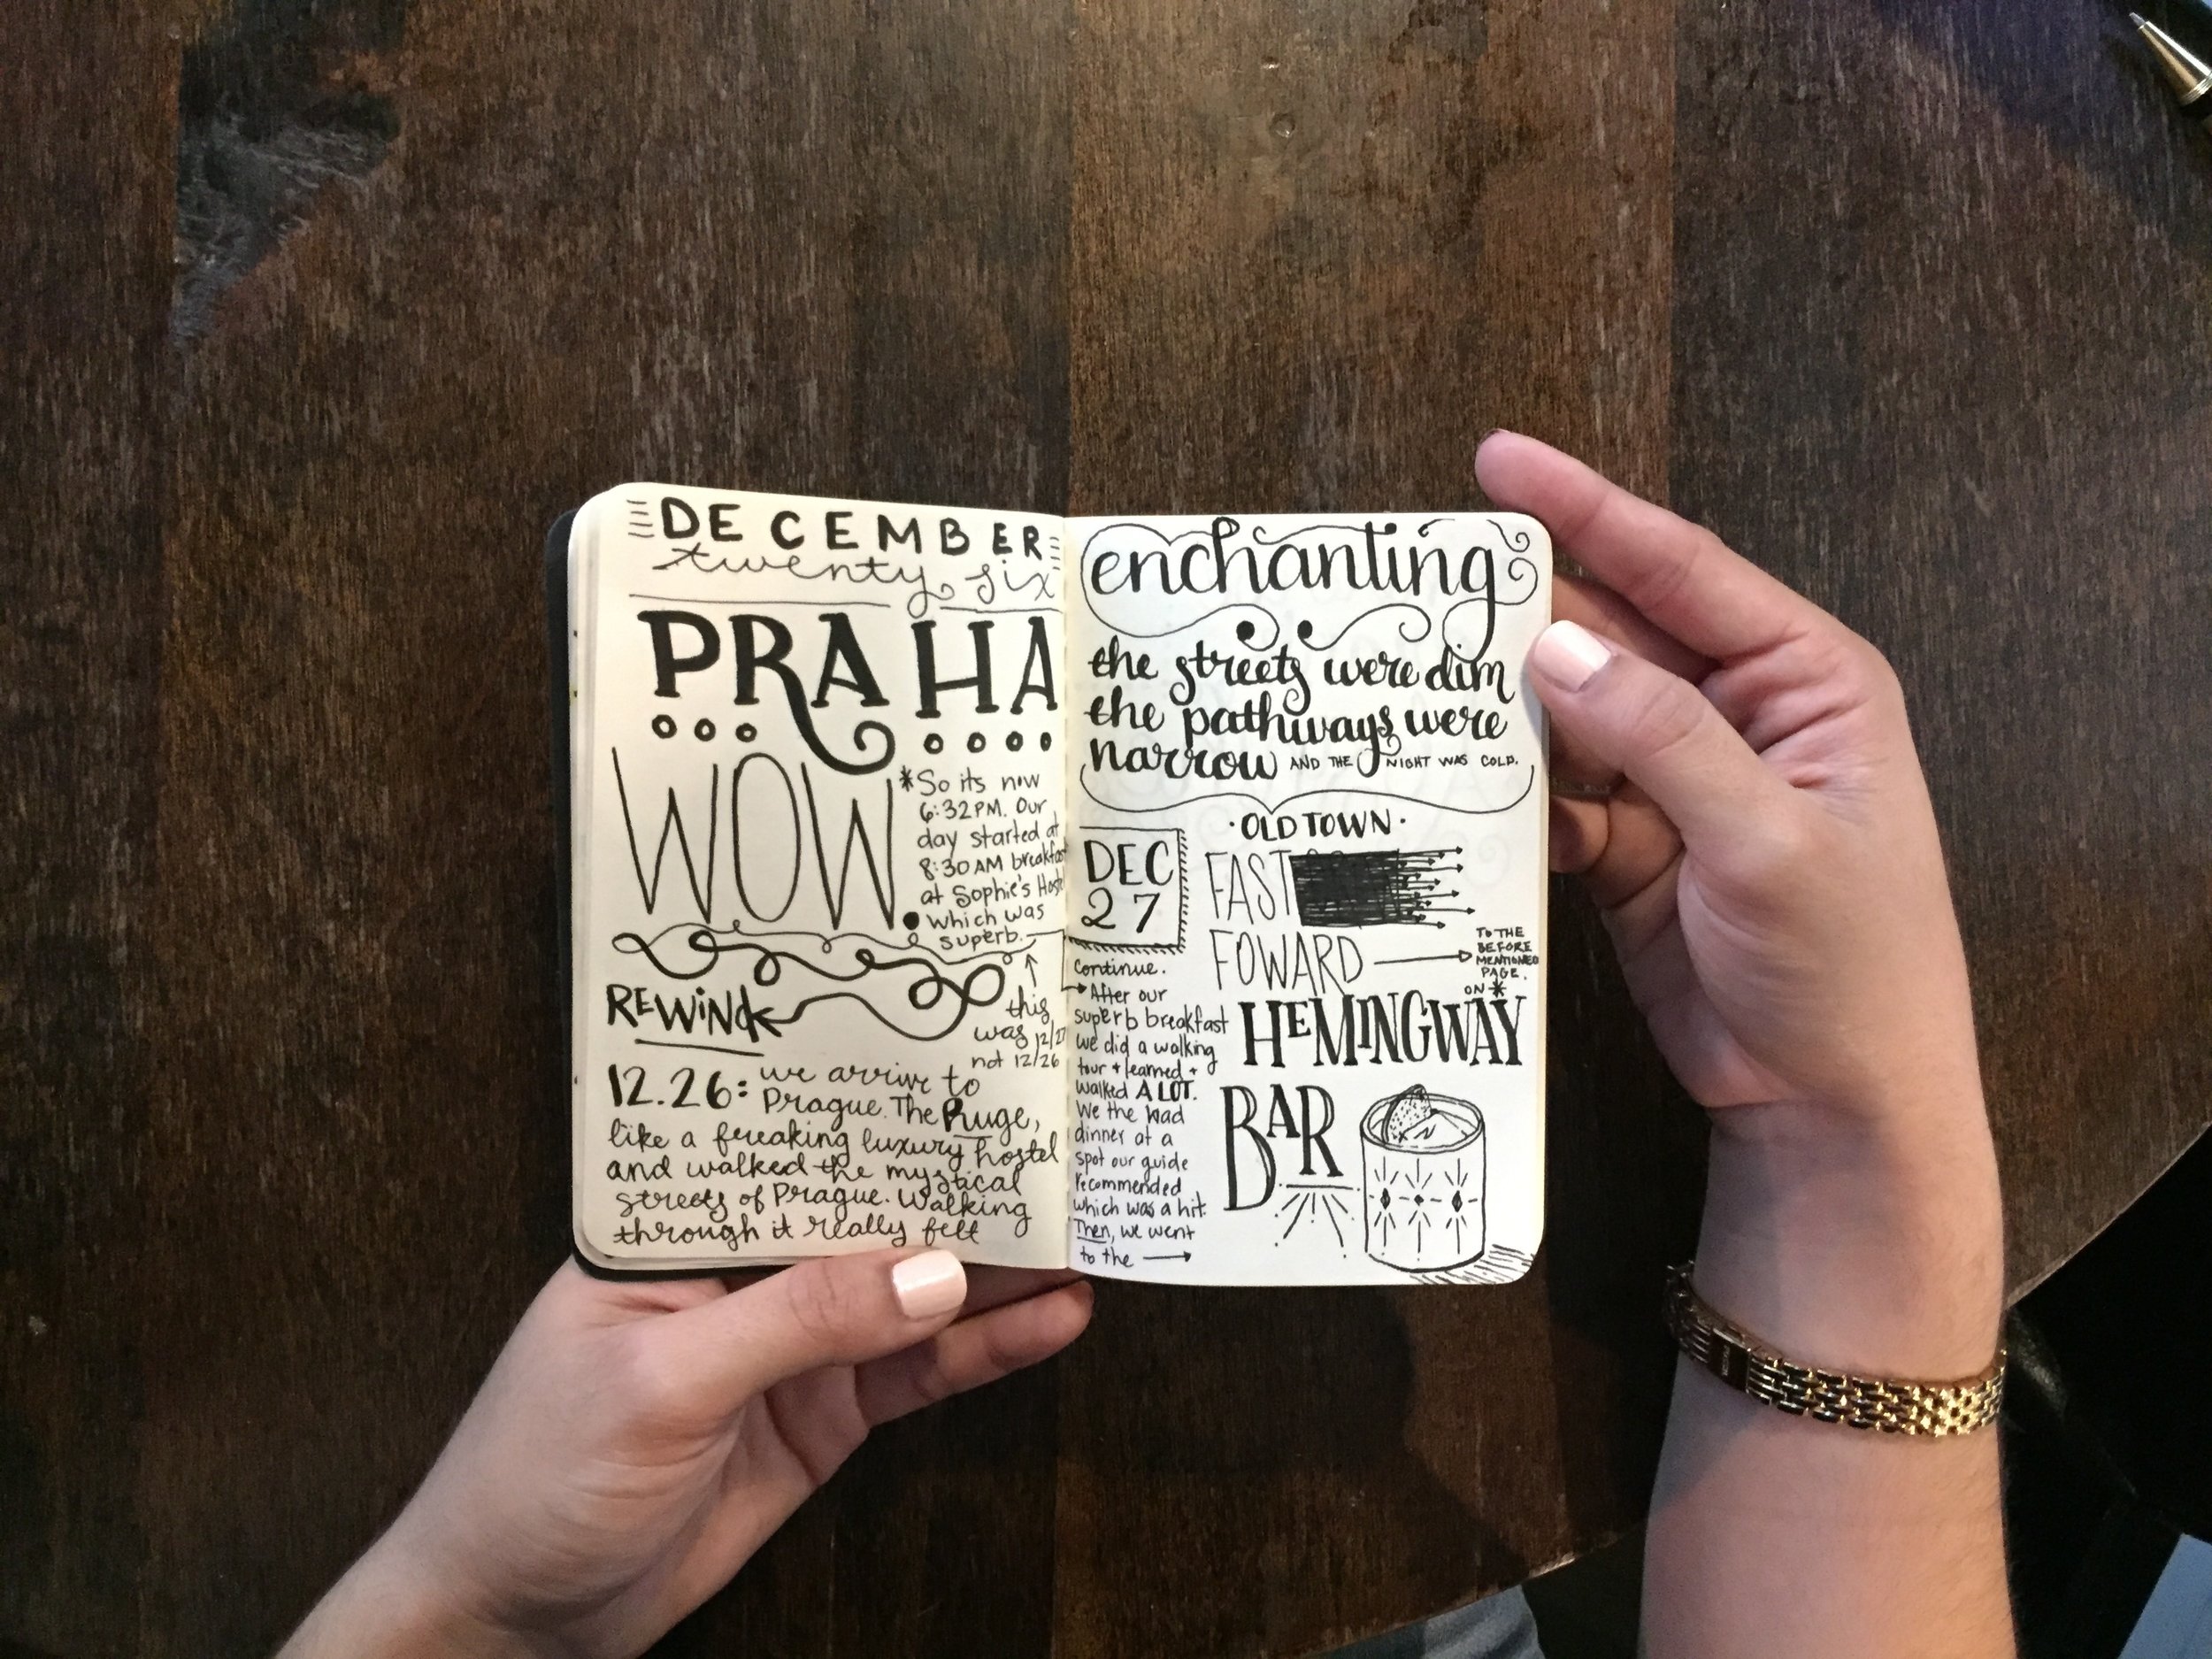 DECEMBER
twenty six
PRAHA
WOW
*So its now
6:32PM. Our
day started at
8:30 AM breakfast
at Sophie's Hostel
which was
superb.
this
was 12/27
not 12/26
REWiNd
12.26: we arrive to
Prague. The Ruge,
like a freaking luxury hostel
and walked the mystical
streets of Prague. Walking
through it really felt
enchanting
the streets were dim
the pathways were
narrow AND THE NIGHT WAS COLD.
·OLD TOWN·
DEC
27
FAST
FOWARD
TO THE
BEFORE
MENTIONED
PAGE.
ON *
continue.
After our
superb breakfast
we did a walking
tour + learned +
walked A LOT.
We the had
dinner at a
spot our guide
recommended
which was a hit.
Then, we went
to the
HEMINGWAY
BAR